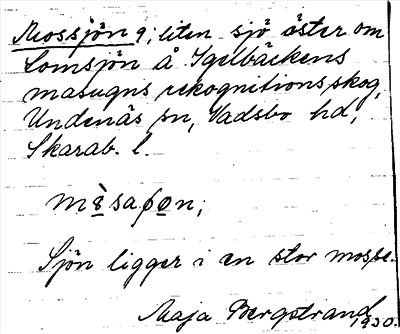 Mossjön 9, liten sjö öster om
Lomsjön å Igelbäckens
masugns rekognitionsskog,
Undenäs sn, Vadsbo hd,
Skarab. l.
Sjön ligger i en stor mosse.
Maja Bergstrand 1930.